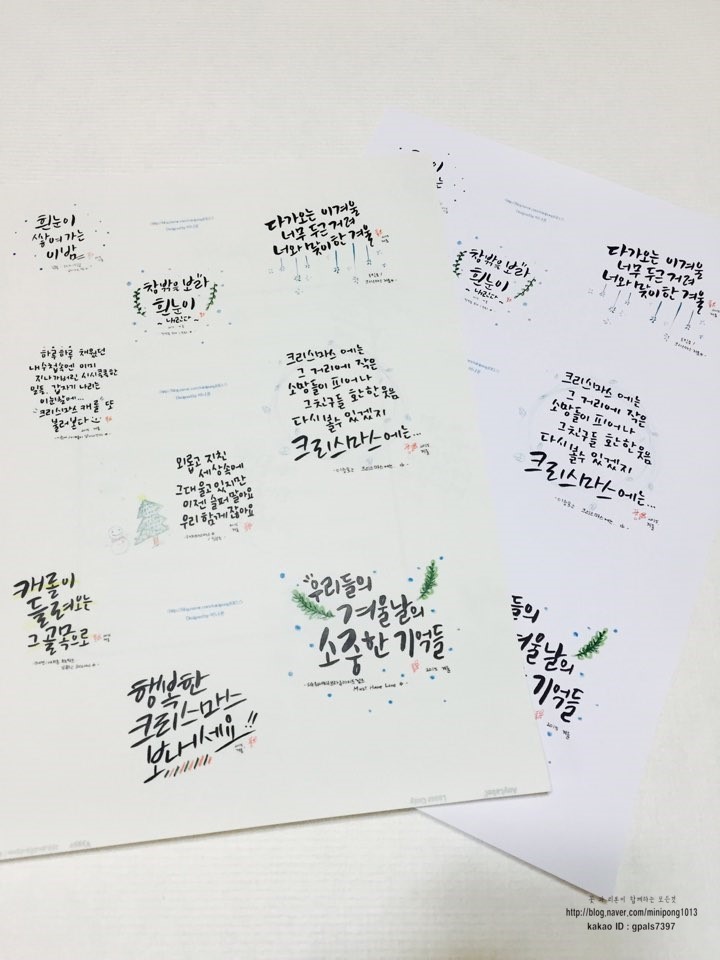 흰눈이
쌓여가는
이밤...
다가오는 이겨울
너무 두근거려
너와 맞이한 겨울
창밖을 보라
흰눈이
~ 내린다 ~
하루하루 채웠던
내수첩속엔 이미
지나가버린 시시콜콜한
말들, 갑자기 나리는
이런날에...
크리스마스 캐롤 또
불러본다
크리스마스 에는
그 거리에 작은
소망들이 피어나
그친구들 환한웃음
다시볼수 있겠지
크리스마스에는...
외롭고 지친
세상속에
그대 울고 있지만
이젠 슬퍼말아요
우리 함께 잖아요
캐롤이
들려오는
그 골목으로
"우리들의
겨울날의
소중한 기억들
2015 겨울
Must Have Love
행복한
크리스마스
보내세요!!
창밖을 보라
흰눈이
내린다
다가오는 이겨울
너무 두근거려
너와 맞이한 겨울
크리스마스 에는
그 거리에 작은
소망들이 피어나
그친구들 환한웃음
다시볼수 있겠지
크리스마스에는...
들의
겨울날의
기억들
꽃 과 리본이 함께하는 모든것
http://blog.naver.com/minipong1013
kakao ID : gpals7397